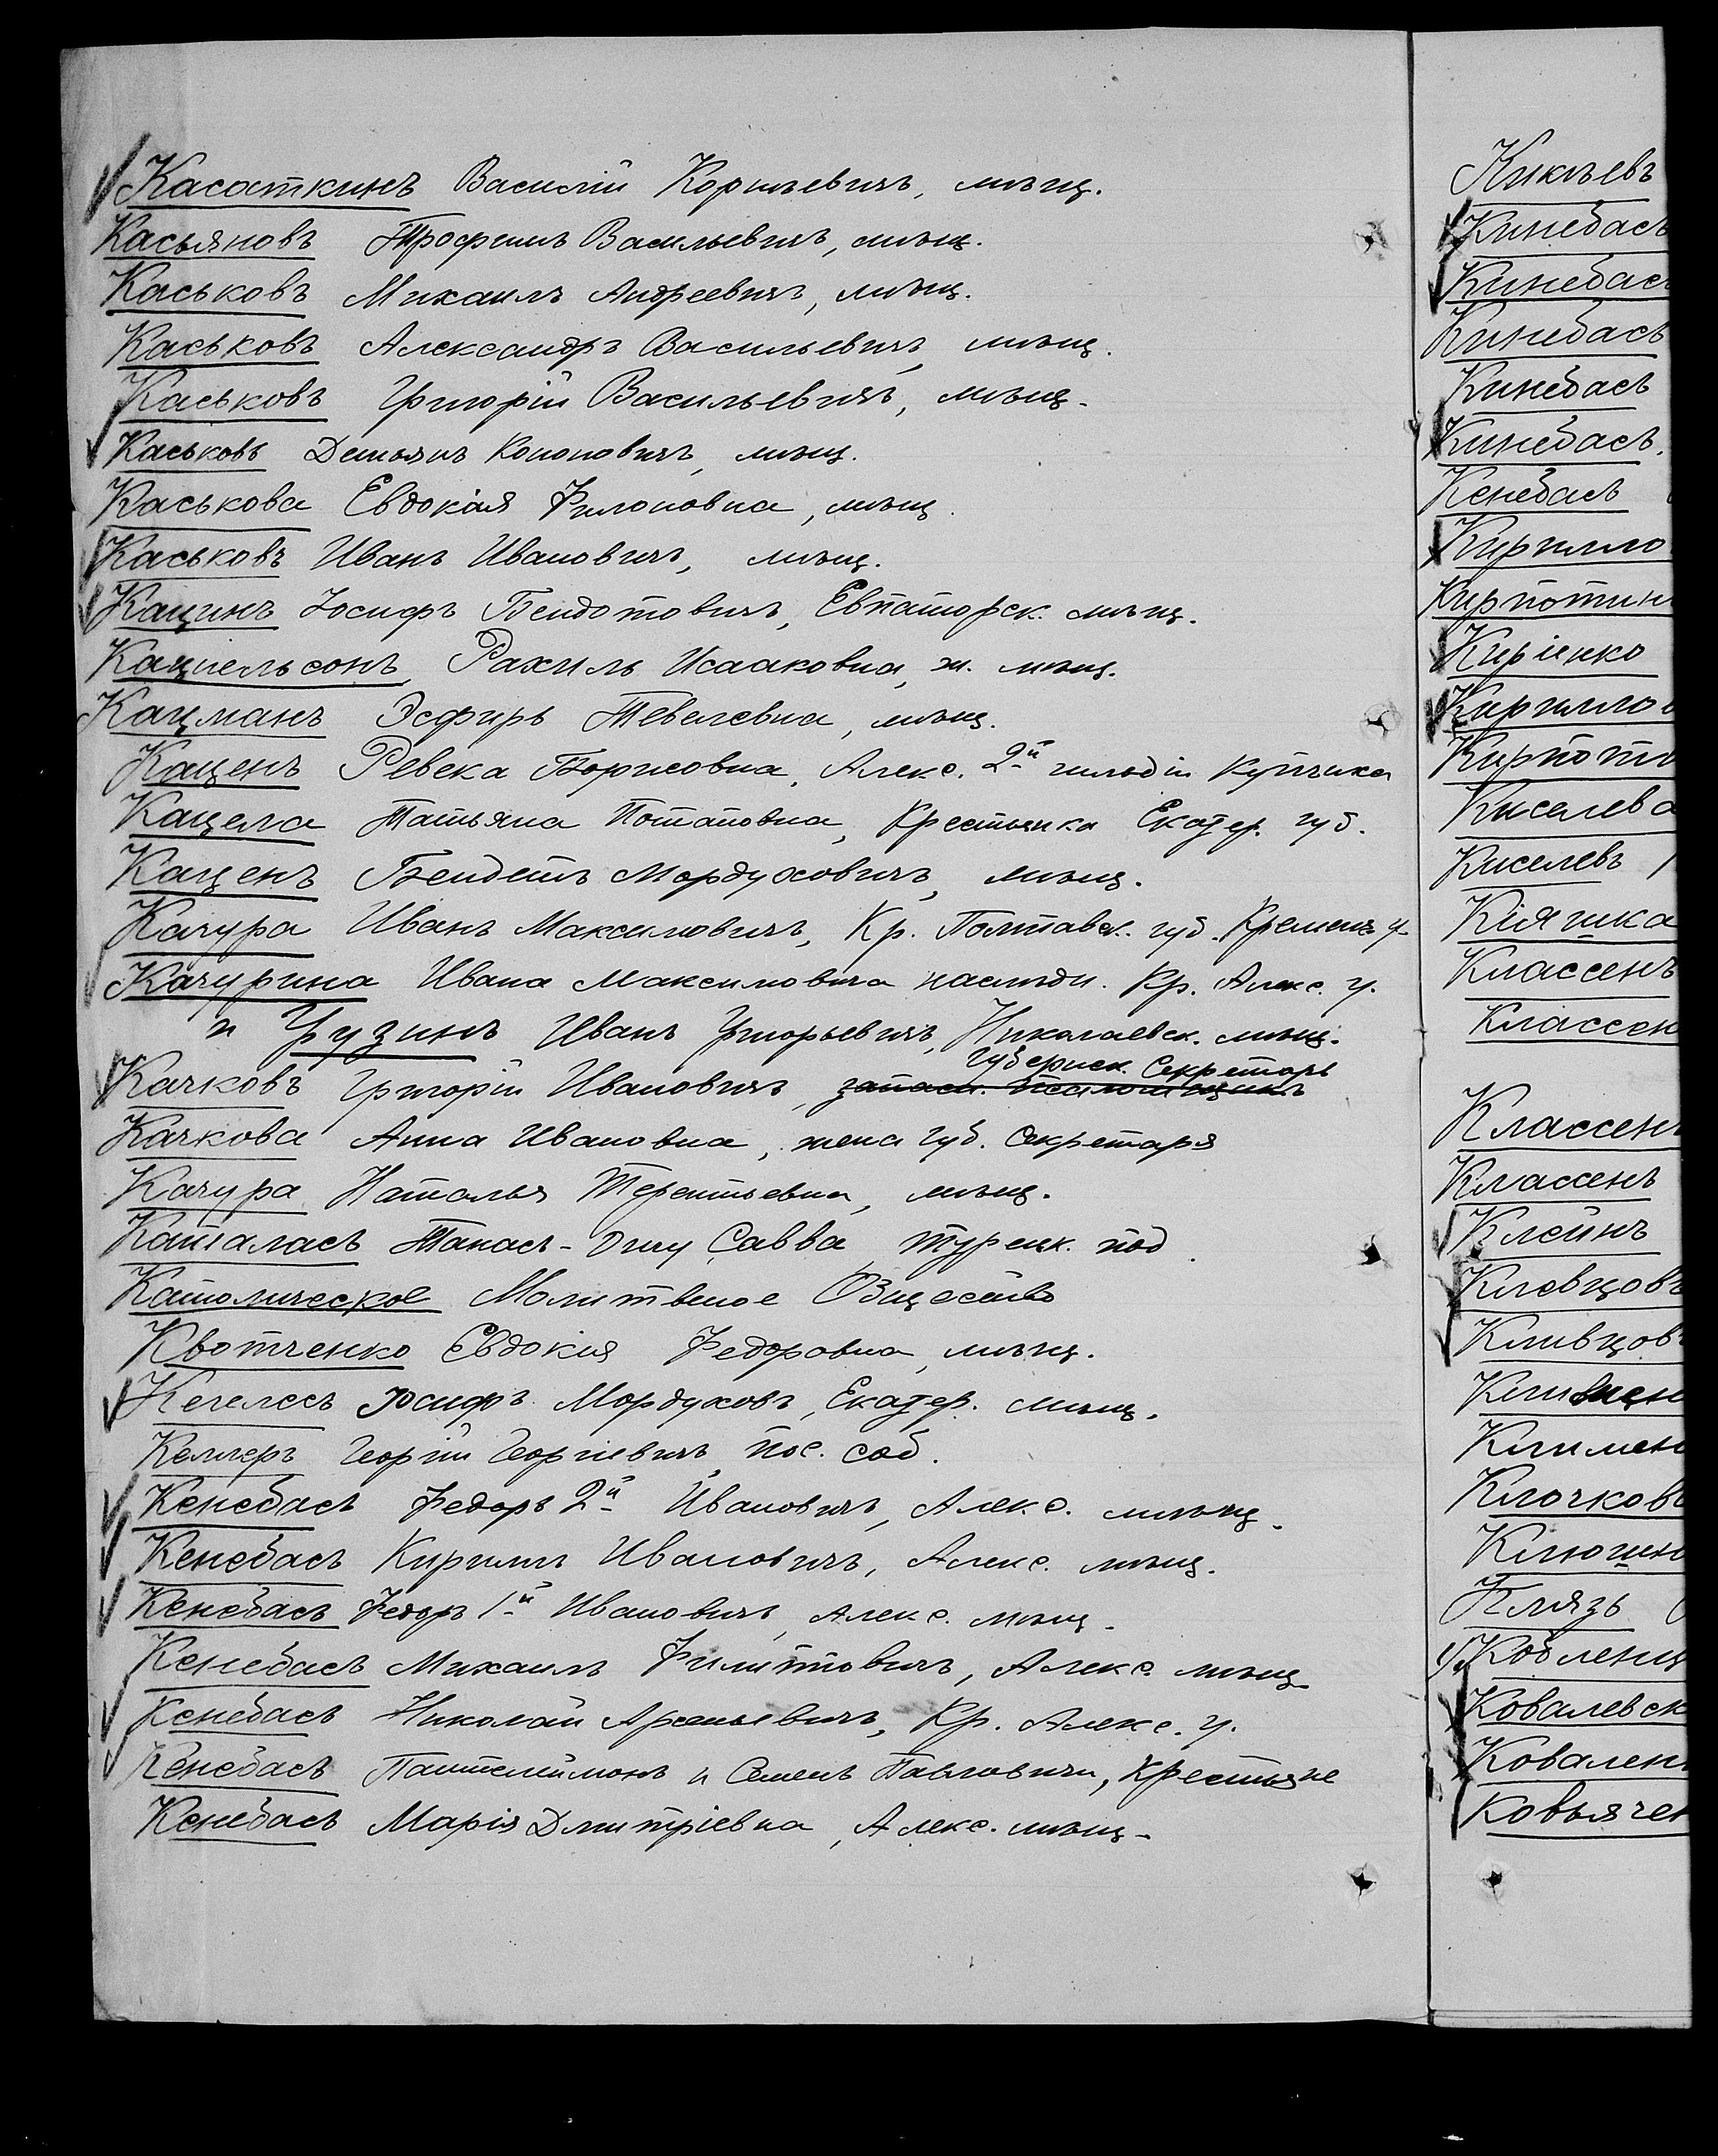 Касаткинъ Василій Корнѣевичъ, мѣщ.
Касьяновъ Трофимъ Васильевичъ, мѣщ.
Каськовъ Михаилъ Андреевичъ, мѣщ.
Каськовъ Александръ Васильевичъ, мѣщ.
Каськовъ Григорій Васильевичъ, мѣщ.
Каськовъ Демьянъ Кононовичъ, мѣщ.
Каськова Евдокія Филоновна, мѣщ.
Каськовъ Иванъ Ивановичъ, мѣщ.
Кацинъ Іосифъ Бендотовичъ, Евпаторск. мѣщ.
Кацнельсонъ, Рахиль Исааковна, ж. мѣщ.
Кацманъ Эсфирь Тевелевна, мѣщ.
Каценъ Ревека Борисовна, Алекс. 2й гильдіи Купчиха
Кацела Татьяна Потаповна, Крестьянка Екатер. губ.
Каценъ Бендетъ Мордуховичъ, мѣщ.
Качура Иванъ Максимовичъ, Кр. Полтавск. губ. Кременч. у.
Качурина Ивана Максимовича наслѣдн. Кр. Алекс. у.
и Грузинъ Иванъ Григорьевичъ, Николаевск. мѣщ.
Губернск. Секретарь
Качковъ Григорій Ивановичъ, запасн. псаломщикъ
Качкова Анна Ивановна, жена губ. Секретаря
Качура Наталья Терентьевна, мѣщ.
Капаласъ Танасъ-Оглу Савва, турецк. под.
Католическое Молитвенное Общество
Квотченко Евдокія Федоровна, мѣщ.
Кегелесъ Юсифъ Мордуховъ, Екатер. мѣщ.
Келлеръ Георгій Георгіевичъ, пос. соб.
Кенебасъ Федоръ 2й Ивановичъ, Алекс. мѣщ.
Кенебасъ Кириллъ Ивановичъ, Алекс. мѣщ.
Кенебасъ Федоръ 1й Ивановичъ, Алекс. мѣщ.
Кенебасъ Михаилъ Филипповичъ, Алекс. мѣщ.
Кенебасъ Николай Арсеньевичъ, Кр. Алекс. у.
Кенебасъ Пантелеймонъ и Семенъ Павловичи, Крестьяне
Кенебасъ Марія Дмитріевна, Алекс. мѣщ.
Кинебасъ
Кинебас
Кинебасъ
Кинебасъ
Кинебасъ.
Кенебасъ
Кирилло
Кирпотин
Киріенко
Кириллов
Кирпото
Киселева
Киселевъ
Кіяшка
Классенъ
Классен
Классен
Классенъ
Клейнъ
Клевцовъ
Кливцов
Климен
Клочков
Клюшн
Князь
Кобленц
Ковалевск
Ковален
Ковьячен